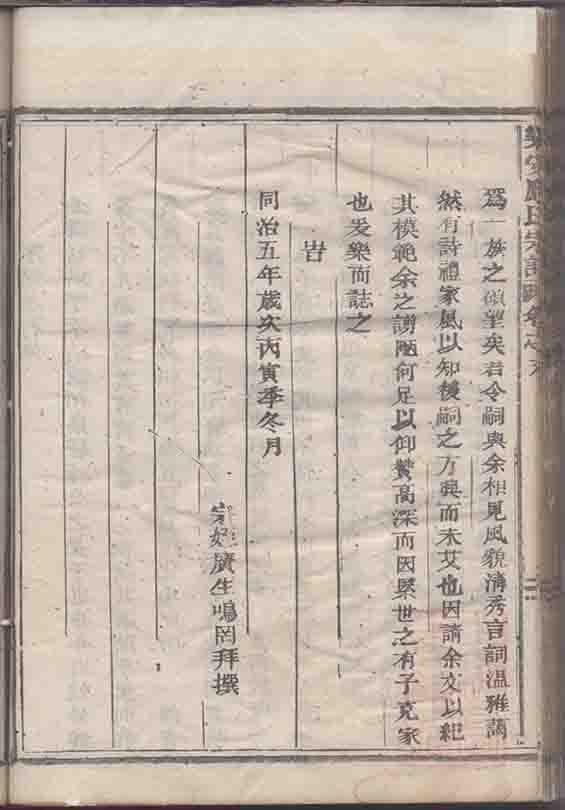 為一族之碩望矣君令嗣與余相見風貌清秀言詞温雅藹
然有詩禮家風以知後嗣之方興而未艾也因請余文以紀
其模範余之謭陋何足以仰贊高深而因槩世之有子克家
也爰樂而誌之
旹
同治五年歲次丙寅季冬月
宗姪廩生鳴罔拜撰
氏宗譜